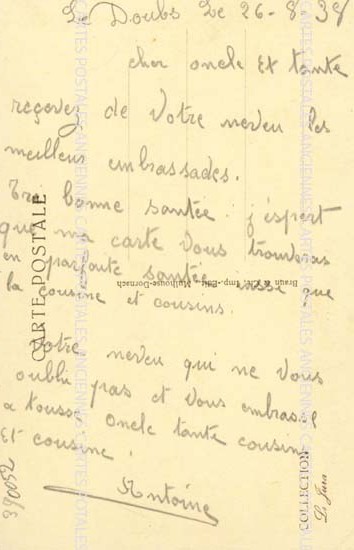 Le Doubs Le 26-8-38
cher oncle Et tante
reçevez de Votre neveu les
meilleur embrassades.
Tre bonne santée j'espert
que ma carte Vous trouveras
en parfaite santée ausse que
la cousine et cousins.
Votre neveu qui ne Vous
oubli pas et Vous embrasse
a tousse oncle tante cousin
Et cousine.
Antoine
CARTE POSTALE
Braun & Cie, Imp.-Edit., Mulhouse-Dornach
COLLECTION
Le Jura
390052
CARTES POSTALES ANCIENNES